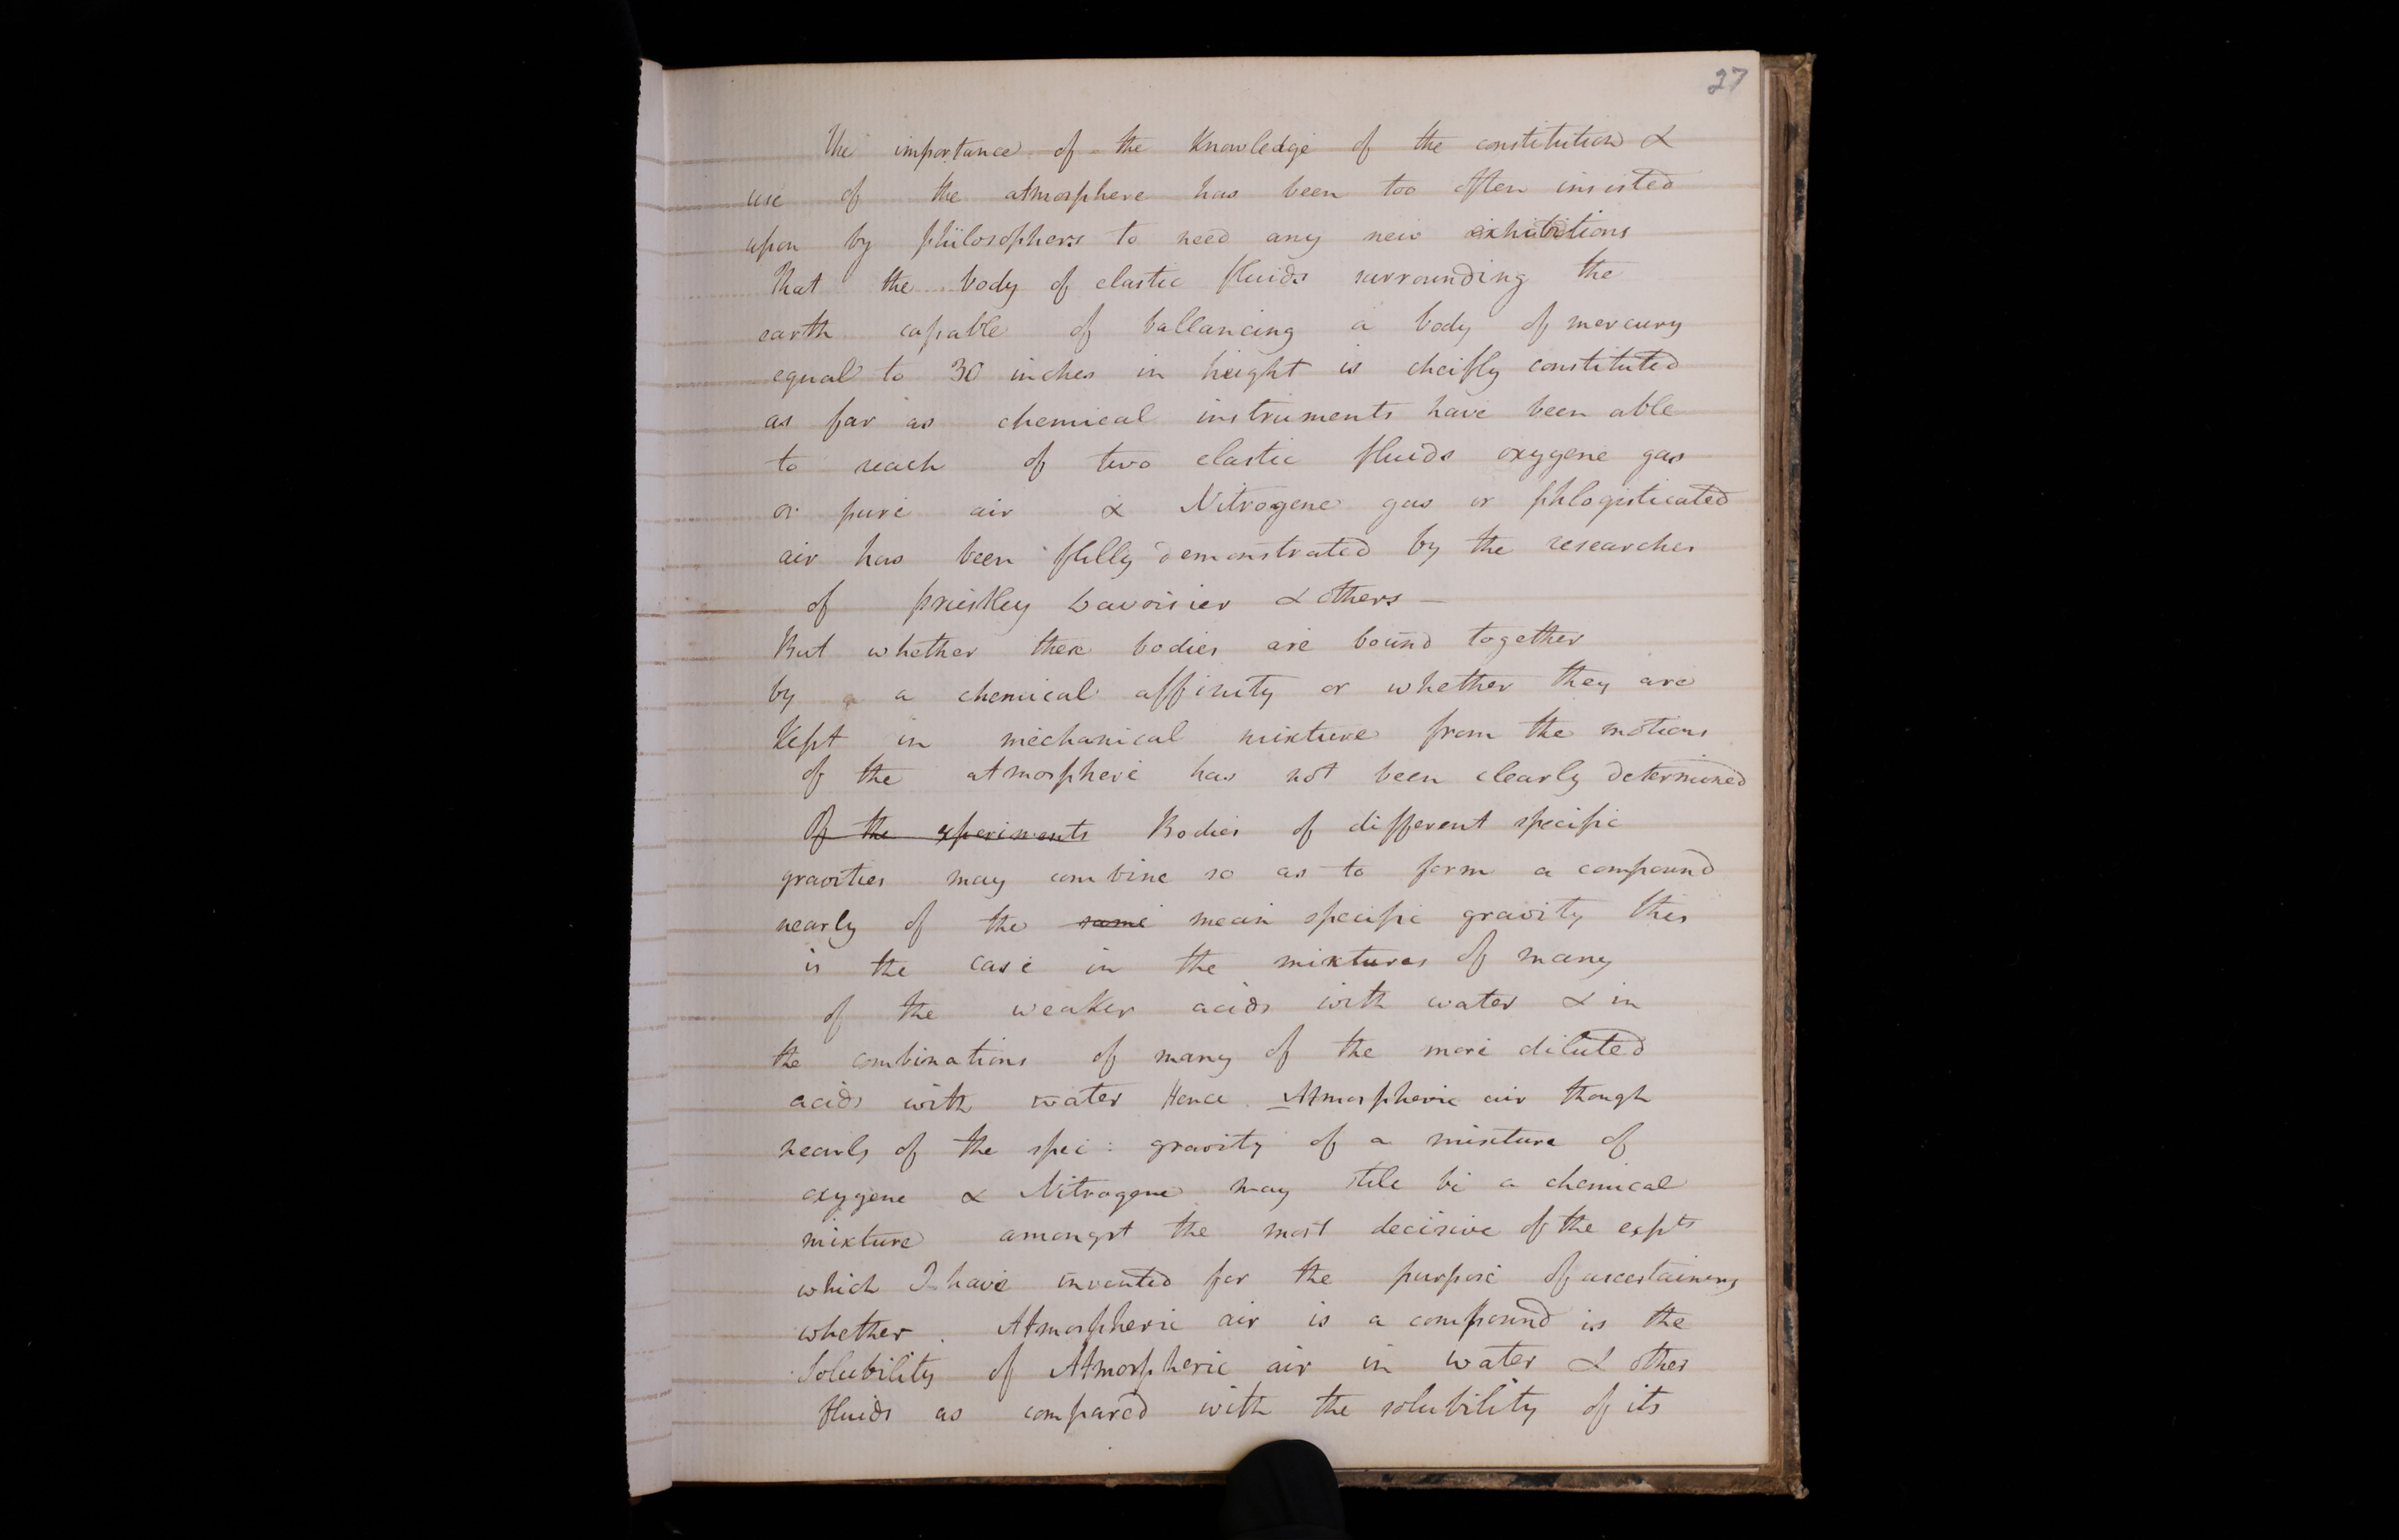 27
The importance of the Knowledge of the constitution &
use of the atmosphere has been too often insisted
upon by philosophers to need any new exhibitions
That the body of elastic fluids surrounding the
earth capable of ballancing a body of mercury
equal to 30 inches in height is cheifly constituted
as far as chemical instruments have been able
to reach of two elastic fluids oxygene gas
or pure air & Nitrogene gas or phlogisticated
air has been fully demonstrated by the researches
of priestley Lavoisier & others —
But whether these bodies are bound together
by a a chemical affinity or whether they are
Kept in mechanical mixture from the motions
of the atmosphere has not been clearly determined
Of the experiments Bodies of different specific
gravities may combine so as to form a compound
nearly of the same mean specific gravity this
is the case in the mixtures of many
of the weaker acids with water & in
the combinations of many of the more diluted
acids with water Hence Atmospheric air though
nearly of the spec: gravity of a mixture of
oxygene & Nitrogene may stile be a chemical
mixture amongst the most decisive of the expts
which I have invented for the purpose of ascertaining
whether . Atmospheric air is a compound is the
Solubility of Atmospheric air in water & other
fluids as compared with the solubility of its